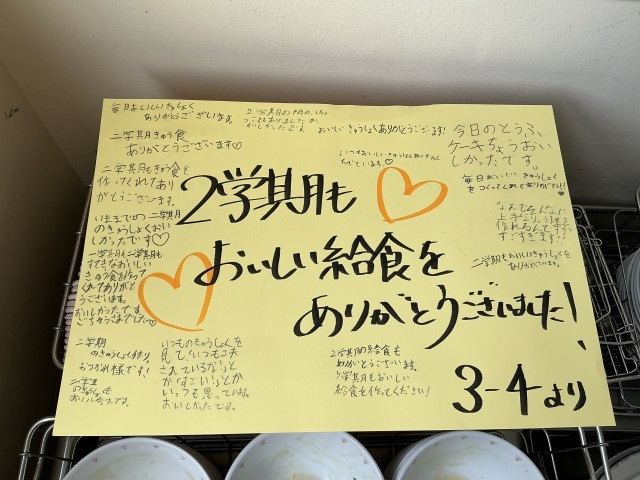 毎日おいしいきゅうしょく
ありがとうございます。
おいしい きゅうしょくありがとうございます!
今日のとうふ
ケーキちょうおい
しかったです。
二学期きゅう食
ありがとうございます♡
毎日おいしい きゅうしょく
をつくってくれてありがとう!!
二学期もきゅう食を
作ってくれてあり
がとうございます。
2学期も
二学期
のきゅうしょくおい
しかったです♡
上手な
作れるんですか
すごすぎます!!
二学期もおいしいきゅうしょくを
ありがとうございます。
おいしい給食を
一学期も二学期も
すてきなおいしい
きゅう食を作って
くれてありがと
うございます。
おいしかったです。
ごちそうさまでした
ありがとうございました!
二学期
のきゅうしょく作り、
おつかれ様です!
二学期
のきゅうしょくも
おいしかったです。
いつものきゅうしょくを
見て「いつも工夫
されているな!」と
か「すごい!」とか
いっつも思っています。
おいしかったです。
2学期の給食も
ありがとうございます。
3学期もおいしい
給食を作ってください!
3-4より